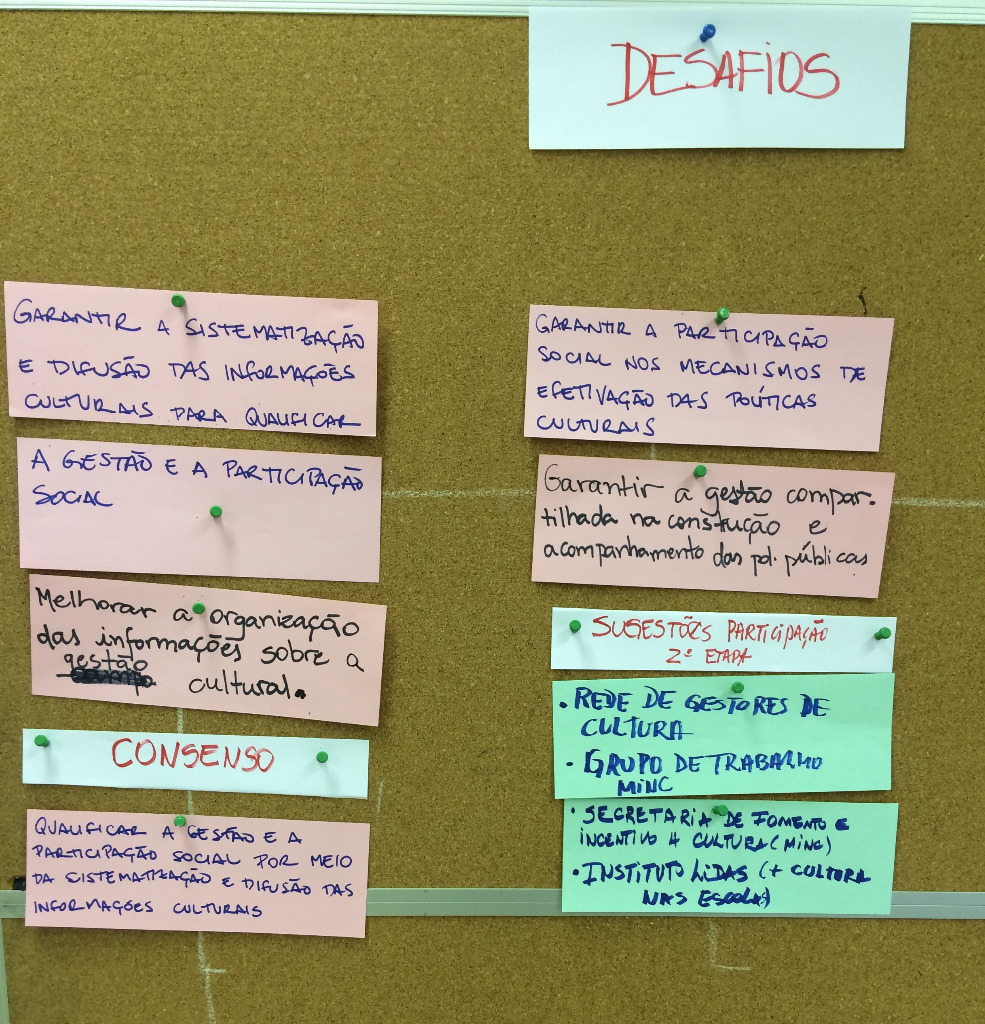 DESAFIOS
GARANTIR A SISTEMATIZAÇÃO
E DIFUSÃO DAS INFORMAÇÕES
CULTURAIS PARA QUALIFICAR
A GESTÃO E A PARTICIPAÇÃO
SOCIAL
Melhorar a organização
das informações sobre a
gestão
cultural.
CONSENSO
QUALIFICAR A GESTÃO E A
PARTICIPAÇÃO SOCIAL POR MEIO
DA SISTEMATIZAÇÃO E DIFUSÃO DAS
INFORMAÇÕES CULTURAIS
GARANTIR A PARTICIPAÇÃO
SOCIAL NOS MECANISMOS DE
EFETIVAÇÃO DAS POLÍTICAS
CULTURAIS
Garantir a gestão compar-
tilhada na constução e
acompanhamento das pol. públicas
SUGESTÕES PARTICIPAÇÃO
2ª ETAPA
• REDE DE GESTORES DE
CULTURA
• GRUPO DE TRABALHO
MINC
• SECRETARIA DE FOMENTO E
INCENTIVO A CULTURA (MINC)
• INSTITUTO LIDAS (+ CULTURA
NAS ESCOLAS)